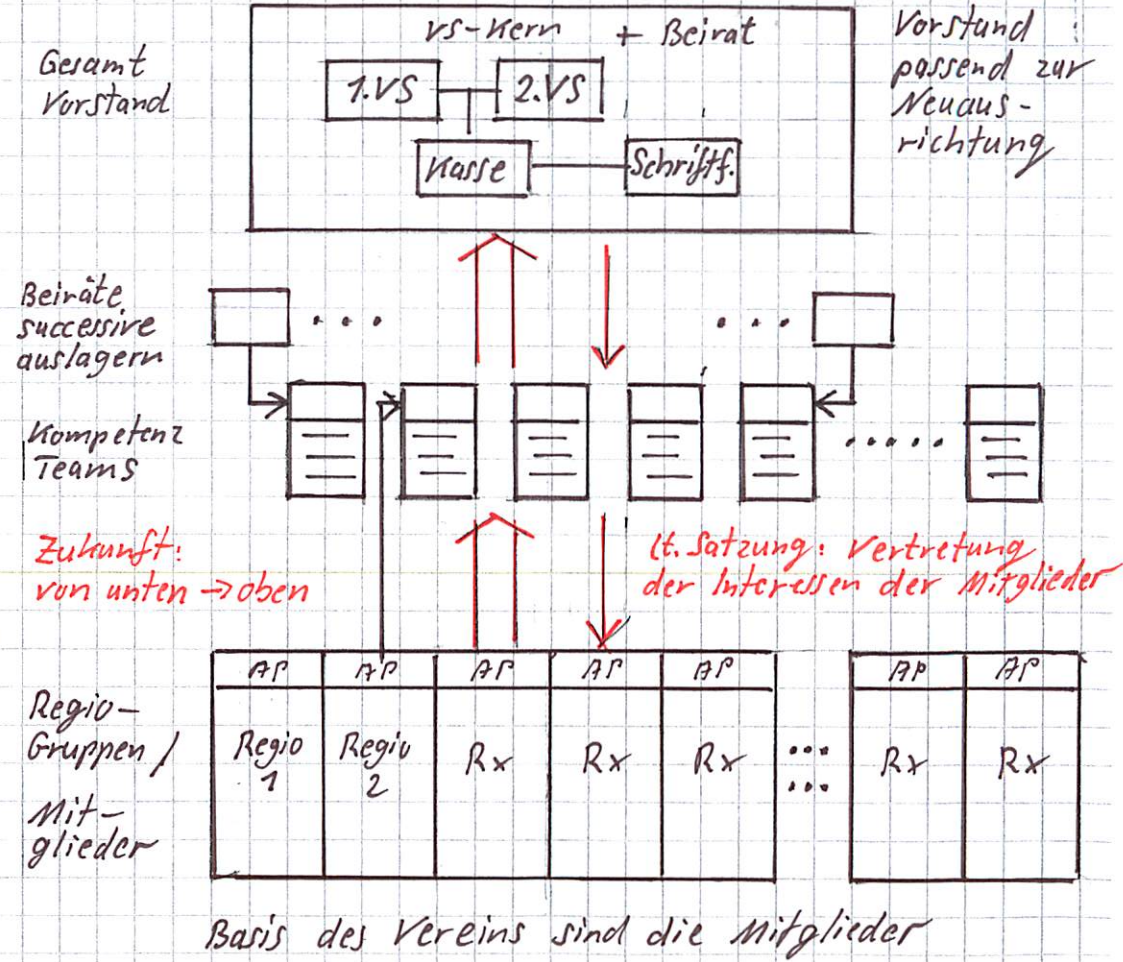 vs-Kern + Beirat
Gesamt
Vorstand
1.VS
2.VS
Kasse
Schriftf.
Vorstand :
passend zur
Neuaus-
richtung
Beiräte
successive
auslagern
...
...
Kompetenz
Teams
.....
Zukunft:
von unten → oben
lt. Satzung: Vertretung
der Interessen der Mitglieder
AP AP AP AP AP AP AP
Regio-
Gruppen /
Mit-
glieder
Regio
1
Regio
2
Rx Rx Rx ... Rx Rx
...
Basis des Vereins sind die Mitglieder